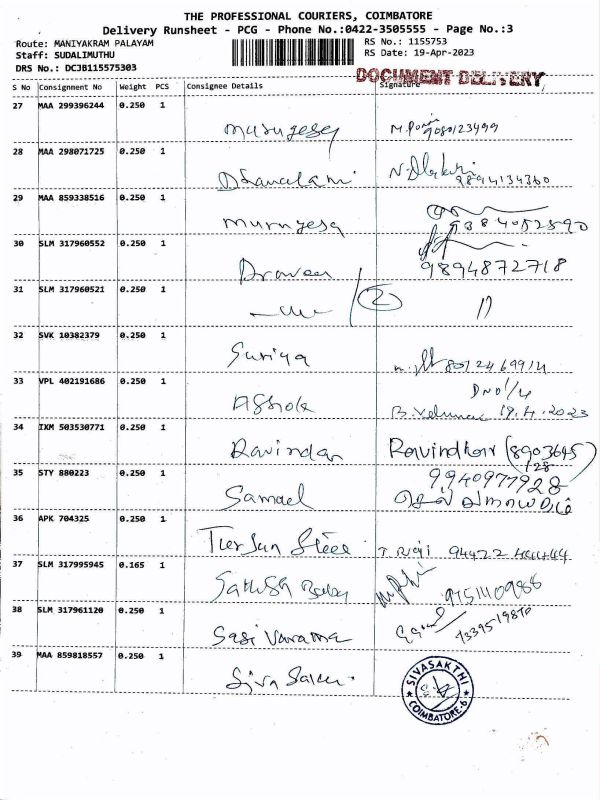 THE PROFESSIONAL COURIERS, COIMBATORE
Delivery Runsheet - PCG - Phone No.:0422-3505555 - Page No.:3
Route: MANIYAKRAM PALAYAM
RS No.: 1155753
Staff: SUDALIMUTHU
RS Date: 19-Apr-2023
DRS No.: DCJB115575303
DOCUMENT DELIVERY
S No Consignment No Weight PCS Consignee Details Signature
27 MAA 299396244 0.250 1
murugesa 9080123499
28 MAA 298071725 0.250 1
Dhanalaxmi 9894134360
29 MAA 859338516 0.250 1
murugesa
30 SLM 317960552 0.250 1
Praveen 9894872718
31 SLM 317960521 0.250 1
2 11
32 SVK 10382379 0.250 1
Suriya
33 VPL 402191686 0.250 1
Ashok 19.4.2023
34 IXM 503530771 0.250 1
Ravindar Ravindkar
35 STY 880223 0.250 1
9940977928
Samuel
36 APK 704325 0.250 1
Steel 94422 44444
37 SLM 317995945 0.165 1
Sathish Babu
38 SLM 317961120 0.250 1
Sasi Varama
39 MAA 859818557 0.250 1
Siva
SIVASAKTHI
COIMBATORE-6